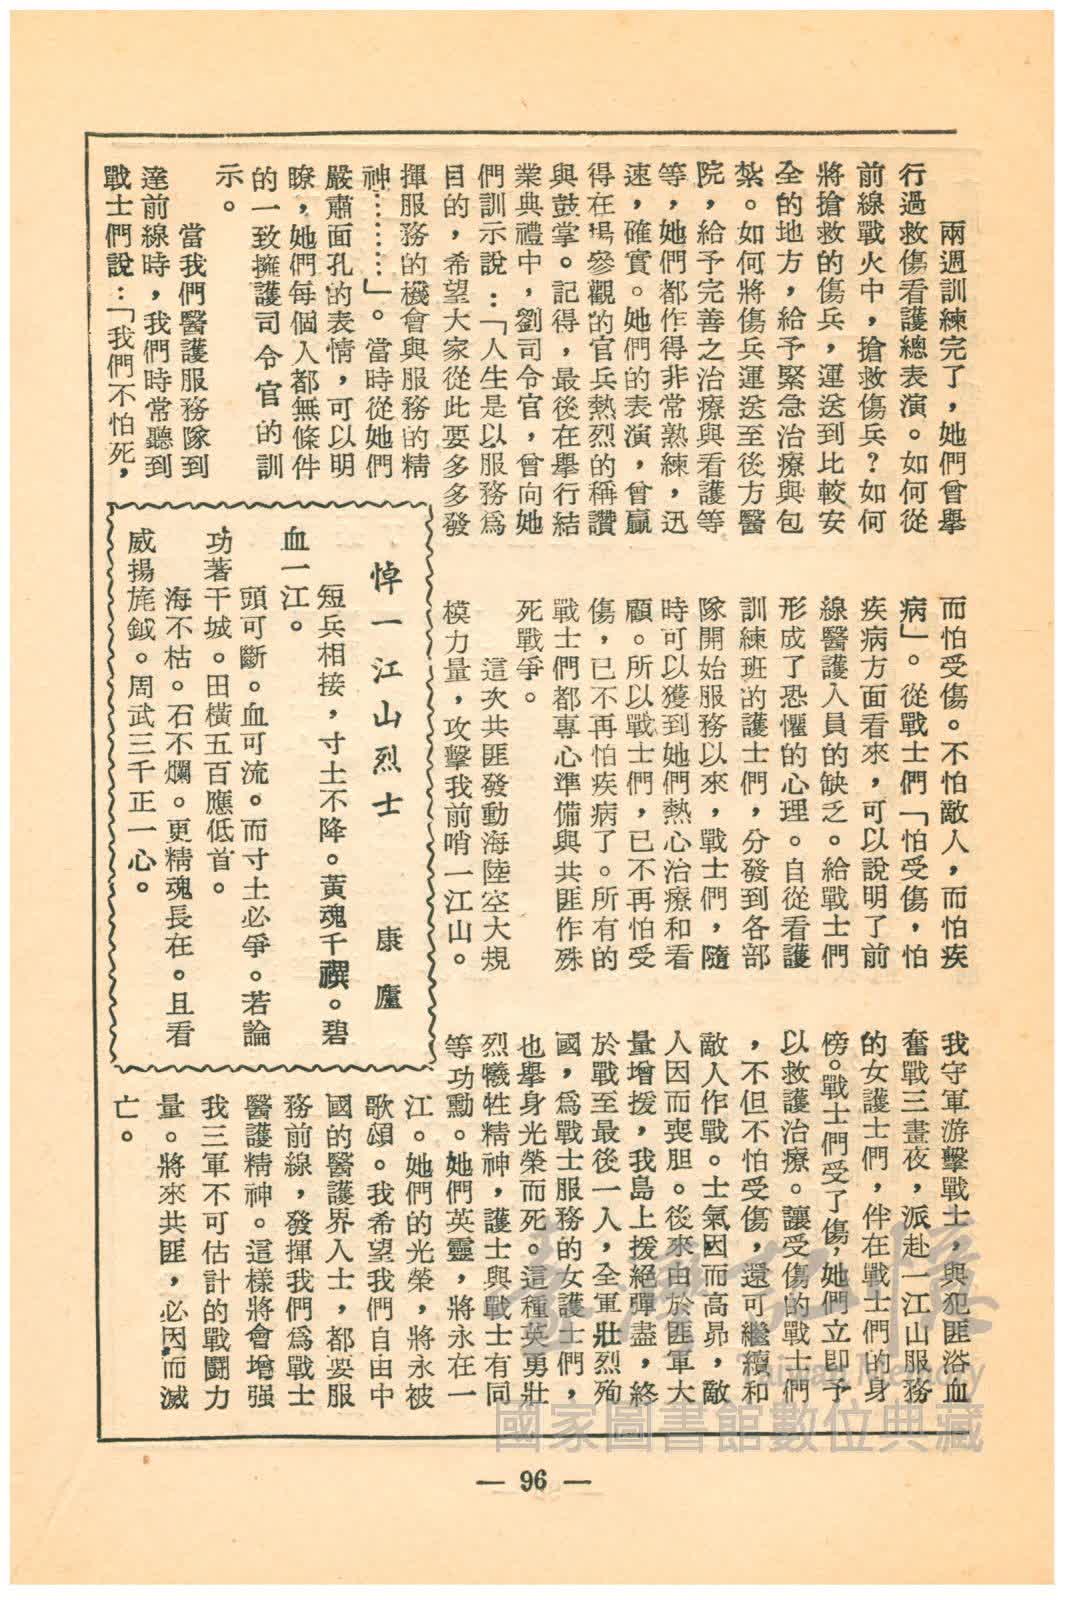 兩週訓練完了，她們曾舉
行過救傷看護總表演。如何從
前線戰火中，搶救傷兵？如何
將搶救的傷兵，運送到比較安
全的地方，給予緊急治療與包
紮。如何將傷兵運送至後方醫
院，給予完善之治療與看護等
等，她們都作得非常熟練，迅
速，確實。她們的表演，曾贏
得在場參觀的官兵熱烈的稱讚
與鼓掌。記得，最後在舉行結
業典禮中，劉司令官，曾向她
們訓示說：「人生是以服務爲
目的，希望大家從此要多多發
揮服務的機會與服務的精
神………」。當時從她們
嚴肅面孔的表情，可以明
瞭，她們每個人都無條件
的一致擁護司令官的訓
示。
當我們醫護服務隊到
達前線時，我們時常聽到
戰士們說：「我們不怕死，
而怕受傷。不怕敵人，而怕疾
病」。從戰士們「怕受傷，怕
疾病方面看來，可以說明了前
線醫護人員的缺乏。給戰士們
形成了恐懼的心理。自從看護
訓練班的護士們，分發到各部
隊開始服務以來，戰士們，隨
時可以獲到她們熱心治療和看
顧。所以戰士們，已不再怕受
傷，已不再怕疾病了。所有的
戰士們都專心準備與共匪作殊
死戰爭。
這次共匪發動海陸空大規
模力量，攻擊我前哨一江山。
我守軍游擊戰士，與犯匪浴血
奮戰三晝夜，派赴一江山服務
的女護士們，伴在戰士們的身
傍。戰士們受了傷，她們立即予
以救護治療。讓受傷的戰士們
，不但不怕受傷，還可繼續和
敵人作戰。士氣因而高昻，敵
人因而喪胆。後來由於匪軍大
量增援，我島上援絕彈盡，終
於戰至最後一人，全軍壯烈殉
國，爲戰士服務的女護士們，
也舉身光榮而死。這種英勇壯
烈犧牲精神，護士與戰士有同
等功勳。她們英靈，將永在一
江。她們的光榮，將永被
歌頌。我希望我們自由中
國的醫護界人士，都要服
務前線，發揮我們爲戰士
醫護精神。這樣將會增强
我三軍不可估計的戰鬪力
量。將來共匪，必因而滅
亡。
悼一江山烈士　康廬
短兵相接，寸土不降。黃魂千禩。碧
血一江。
頭可斷。血可流。而寸土必爭。若論
功著干城。田橫五百應低首。
海不枯。石不爛。更精魂長在。且看
威揚旄鉞。周武三千正一心。
— 96 —
臺灣記憶
Taiwan Memory
國家圖書館數位典藏